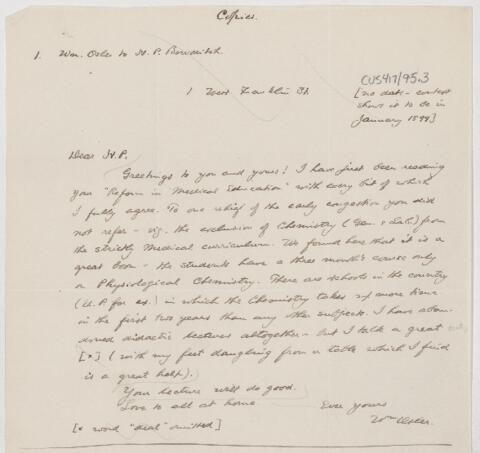 Copies.
1. Wm. Osler to H. P. Bowditch
1 West Franklin St.
CUS417/95.3
[no date - context
shows it to be in
January 1899]
Dear H.P.
Greetings to you and yours! I have just been reading
your "Reform in Medical Education" with every bit of which
I fully agree. To one relief of the early congestion you did
not refer - viz. the exclusion of Chemistry (Gen. & Lab.) from
the strictly Medical curriculum. We found here that it is a
great boon - the students have a three month's course only
in Physiological Chemistry. There are schools in the country
(U.P. for ex.) in which the Chemistry takes up more time
in the first two years than any other subject. I have aban-
doned didactic lectures altogether - but I talk a great
[*] (with my feet dangling from a table, which I find
is a great help).
Your lecture will do good.
Love to all at home
Ever yours
Wm Osler.
[* word "deal" omitted]